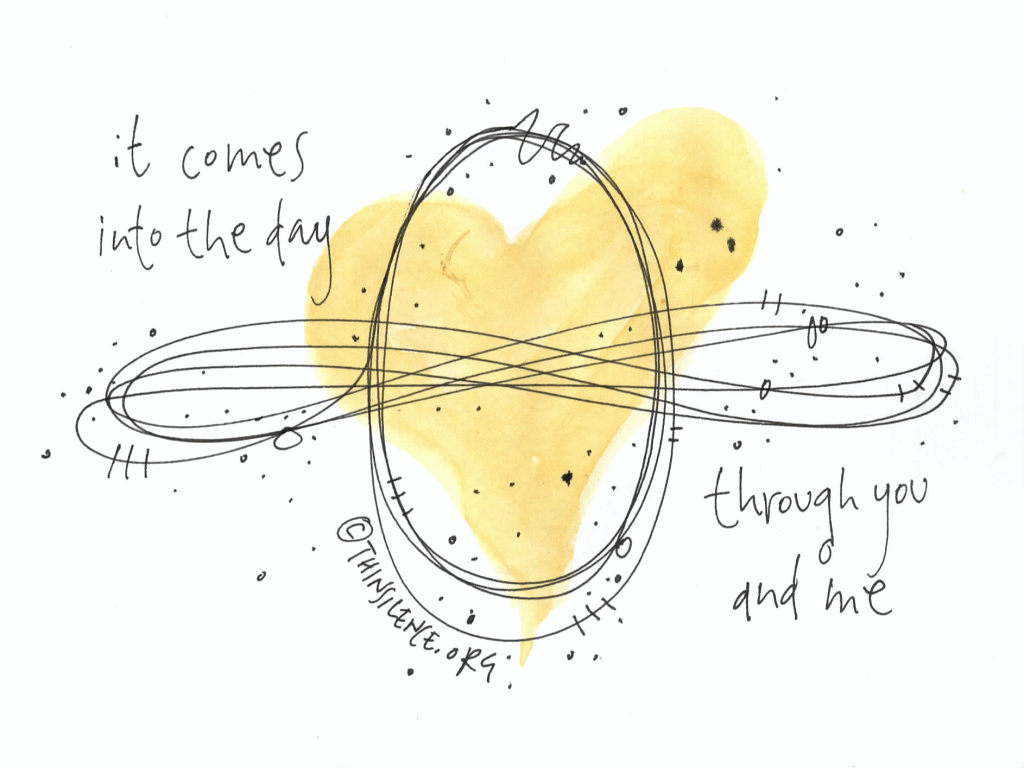 it comes
into the day
through you
and me
©THINSILENCE.ORG